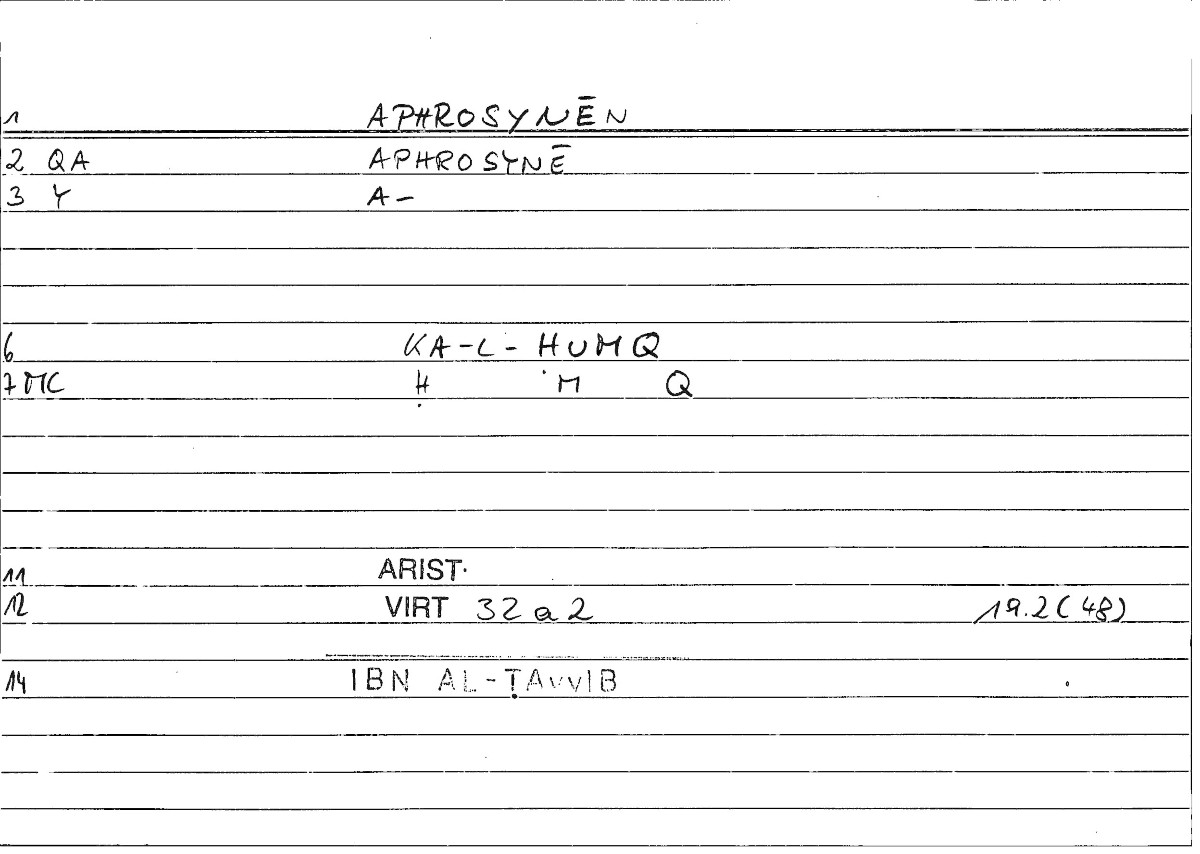 1 APHROSYNĒN
2 QA APHROSYNĒ
3 Y A-
6 KA-L-HUMQ
7 MC Ḥ M Q
11 ARIST.
12 VIRT 32 a 2 19.2 (48)
14 IBN AL-ṬAYYIB